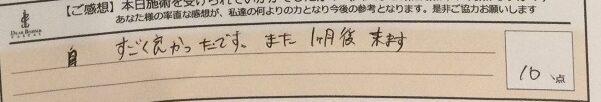 【ご感想】本日施術を受けられていかがでしたか
あなた様の率直な感想が、私達の何よりの力となり今後の参考となります。是非ご協力お願いします
すごく良かったです。また 1ヶ月後 来ます
10 点